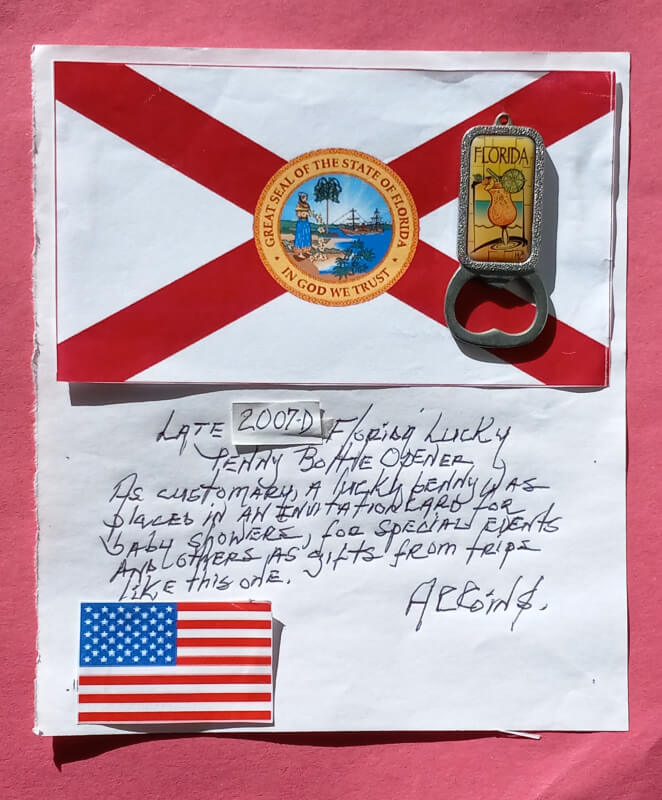 GREAT SEAL OF THE STATE OF FLORIDA
IN GOD WE TRUST
FLORIDA
LATE 2007-D Florida Lucky
Penny Bottle Opener
As customary, A lucky penny was
placed in AN INVITATION CARD for
baby showers, for special events
AND others as gifts from trips
like this one.
ARCoin$.